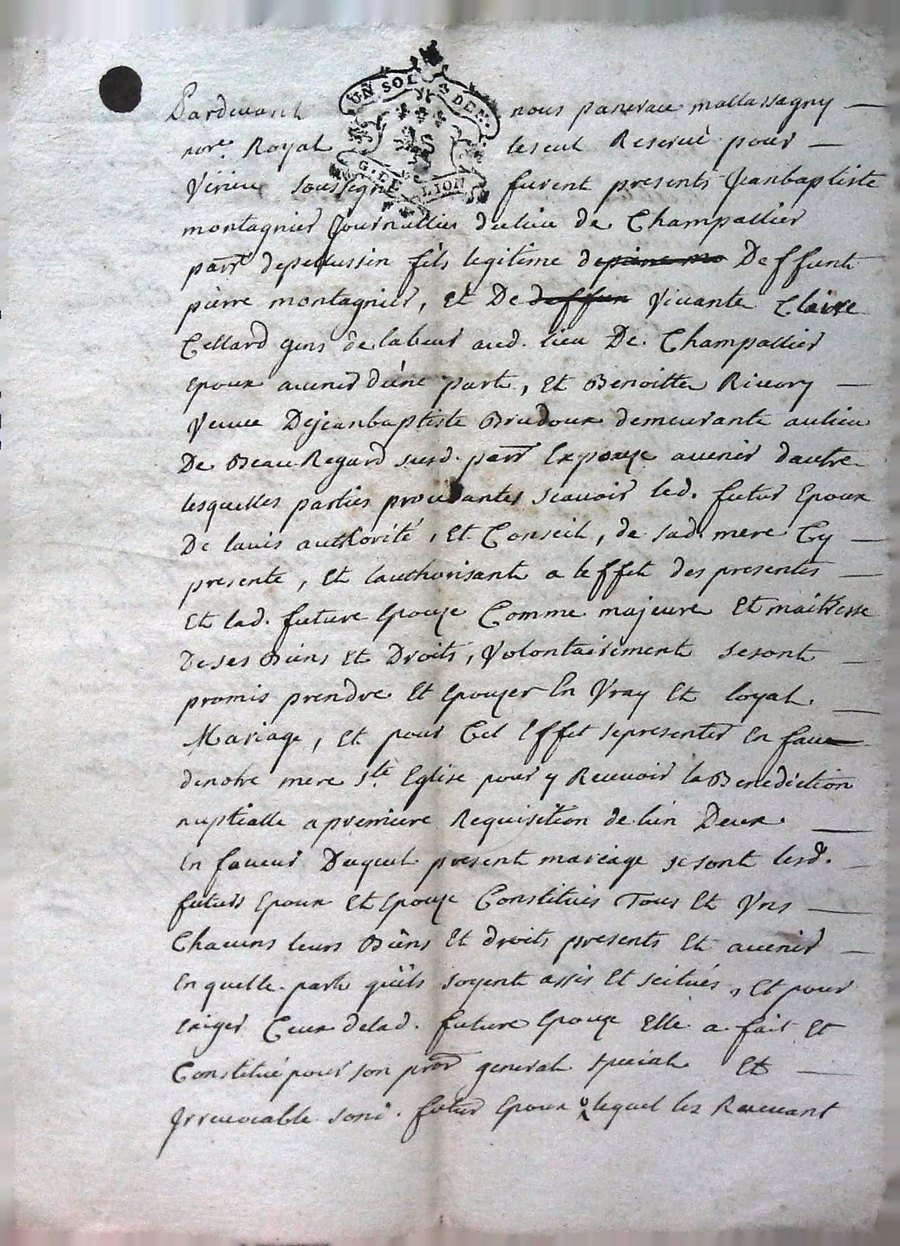 UN SOL 3 DEN.
G. DE LION
Pardevant nous pancrace mallassagny
nore. Royal le seul Reservé pour
Virieu soussigné furent presents Jeanbaptiste
montagnier Journallier dulieu de Champallier
parr. depelussin fils legitime de Deffunt
pierre montagnier, et De deffun vivante Claire
Cellard gens de labeur aud. lieu De Champallier
epoux avenir dúne part, et Benoitte Rivory
Veuve Dejeanbaptiste Brudoux demeurante aulieu
De BeauRegard susd. parr Expouze avenir dautre
lesquelles parties procedantes scavoir led. futur Epoux
De lavis authorité, et Conseil, de sad. mere Cy
presente, et lauthorisant a leffet des presentes
et lad. future Epouze Comme majeure et maitresse
De ses Biens et Droits, Volontairement sesont
promis prendre et epouzer En Vray et loyal
Mariage, et pour Cet Effet sepresenter En face
denotre mere Ste. Eglise pour y Recevoir la Benediction
nuptialle a premiere Requisition de lún Deux
En faveur Duquel present mariage se sont lesd.
futurs Epoux et Epouze Constitués Tous et Uns
Chacuns leurs Biens et droits presents et avenir
En quelle part quïls soyent assis et scitués, et pour
exiger Ceux delad. future Epouze Elle a fait et
Constitué pour son procr general special et
Irrevocable sond. futur Epoux lequel les Recevant